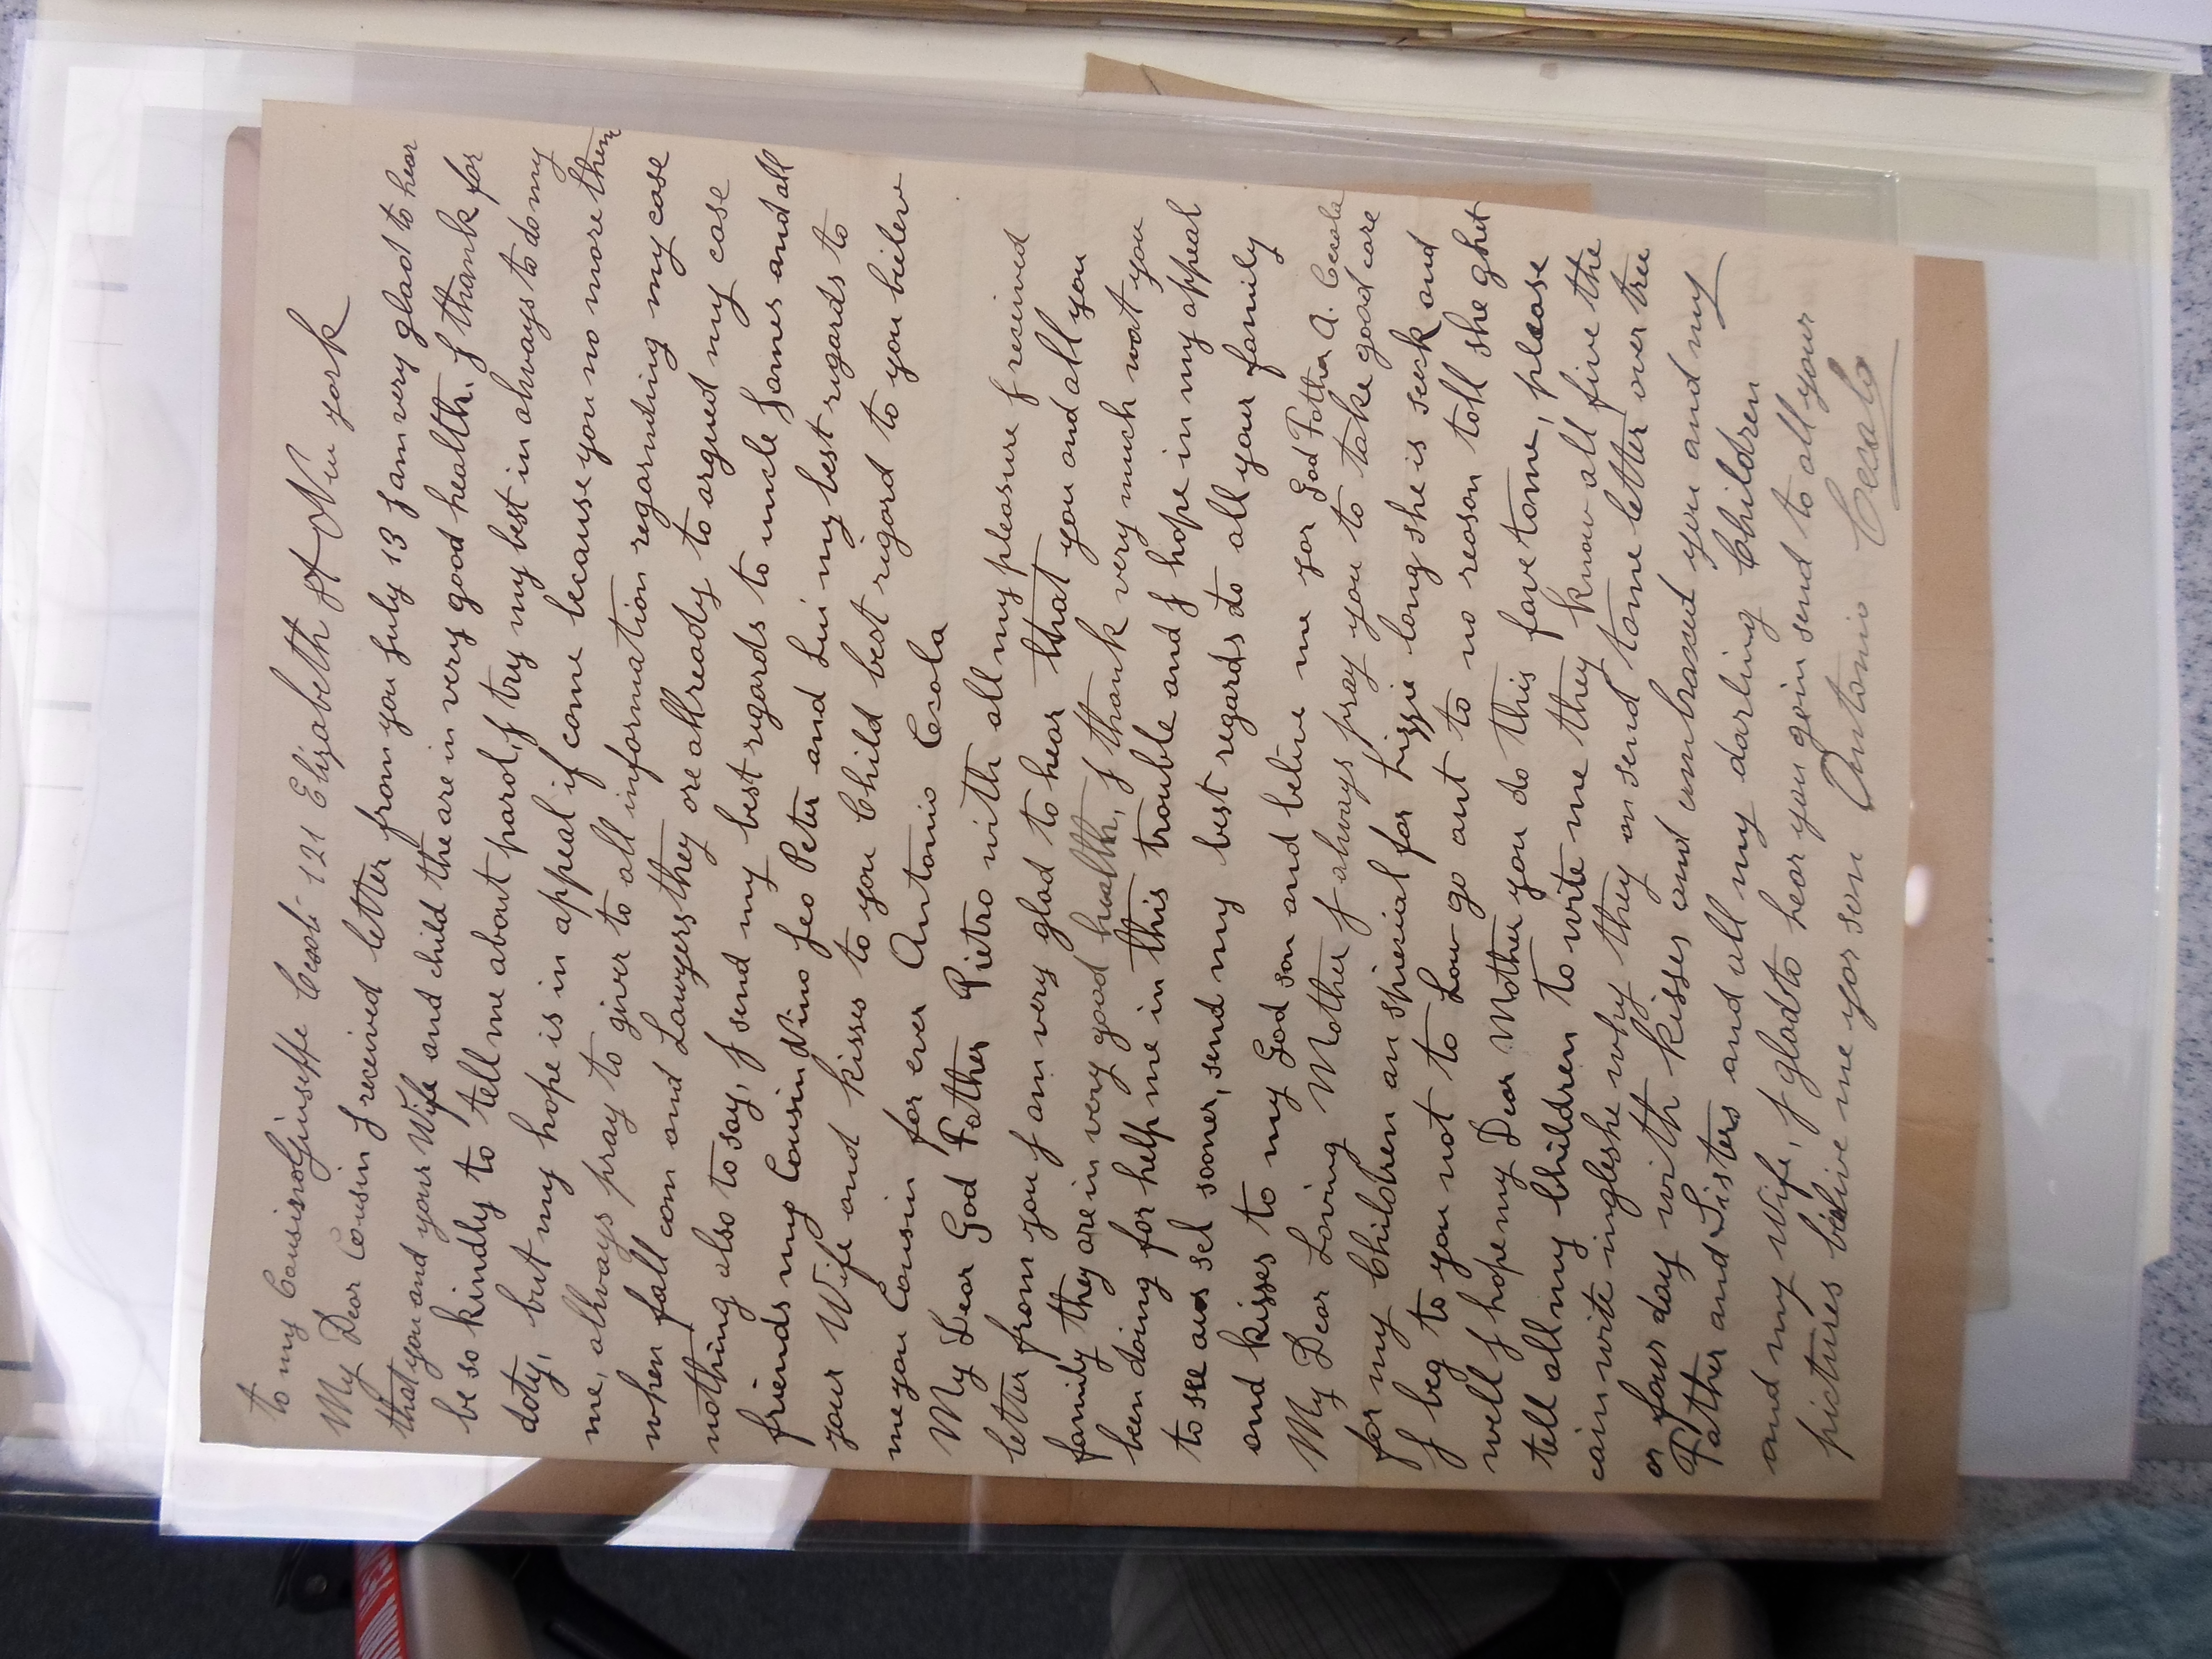 to my Cousino Giuseppe 121 Elizabeth st New york
My Dear Cousin I received letter from you July 13 I am very glad to hear
that you and your Wife and child the are in very good health. I thank for
be so kindly to tell me about parol, I try my best in always to do my
doty, but my hope is in appeal if come because you no more them
me, allways pray to giver to all information regarnding my case
when fall com and Lawyers they are allready to argued my case
nothing also to say, I send my best regards to uncle James and all
friends my Cousin Nino Leo Peter and Lui my best regards to
your Wife and kisses to you Child best rigard to you bielew
me you Cousin for ever Antonio Cecala
My Dear God Father Pietro with all my pleasure I received
letter from you I am very glad to hear that you and all you
family they are in very good health, I thank very much wat you
been doing for help me in this trouble and I hope in my appeal
to see aus sel sooner, send my best regards to all your family
and kisses to my God son and belive me yor God Father A. Cecala
My Dear Loving Mother I always pray you to take good care
for my Children an spiecial for Lizzie long she is seeck and
I beg to you not to Low go out to no reason toll she ghet
well I hope my Dear Mother you do this fave to me, please
tell all my Children to wite me they know all five the
cain wite ingleshe why they on send to me letter over tree
or four day with kisses and umbraxed you and my
Father and Sisters and all my darling Children
and my Wife, I glad to hear you goin send to all your
pictures bielive me yor son Antonio Cecala